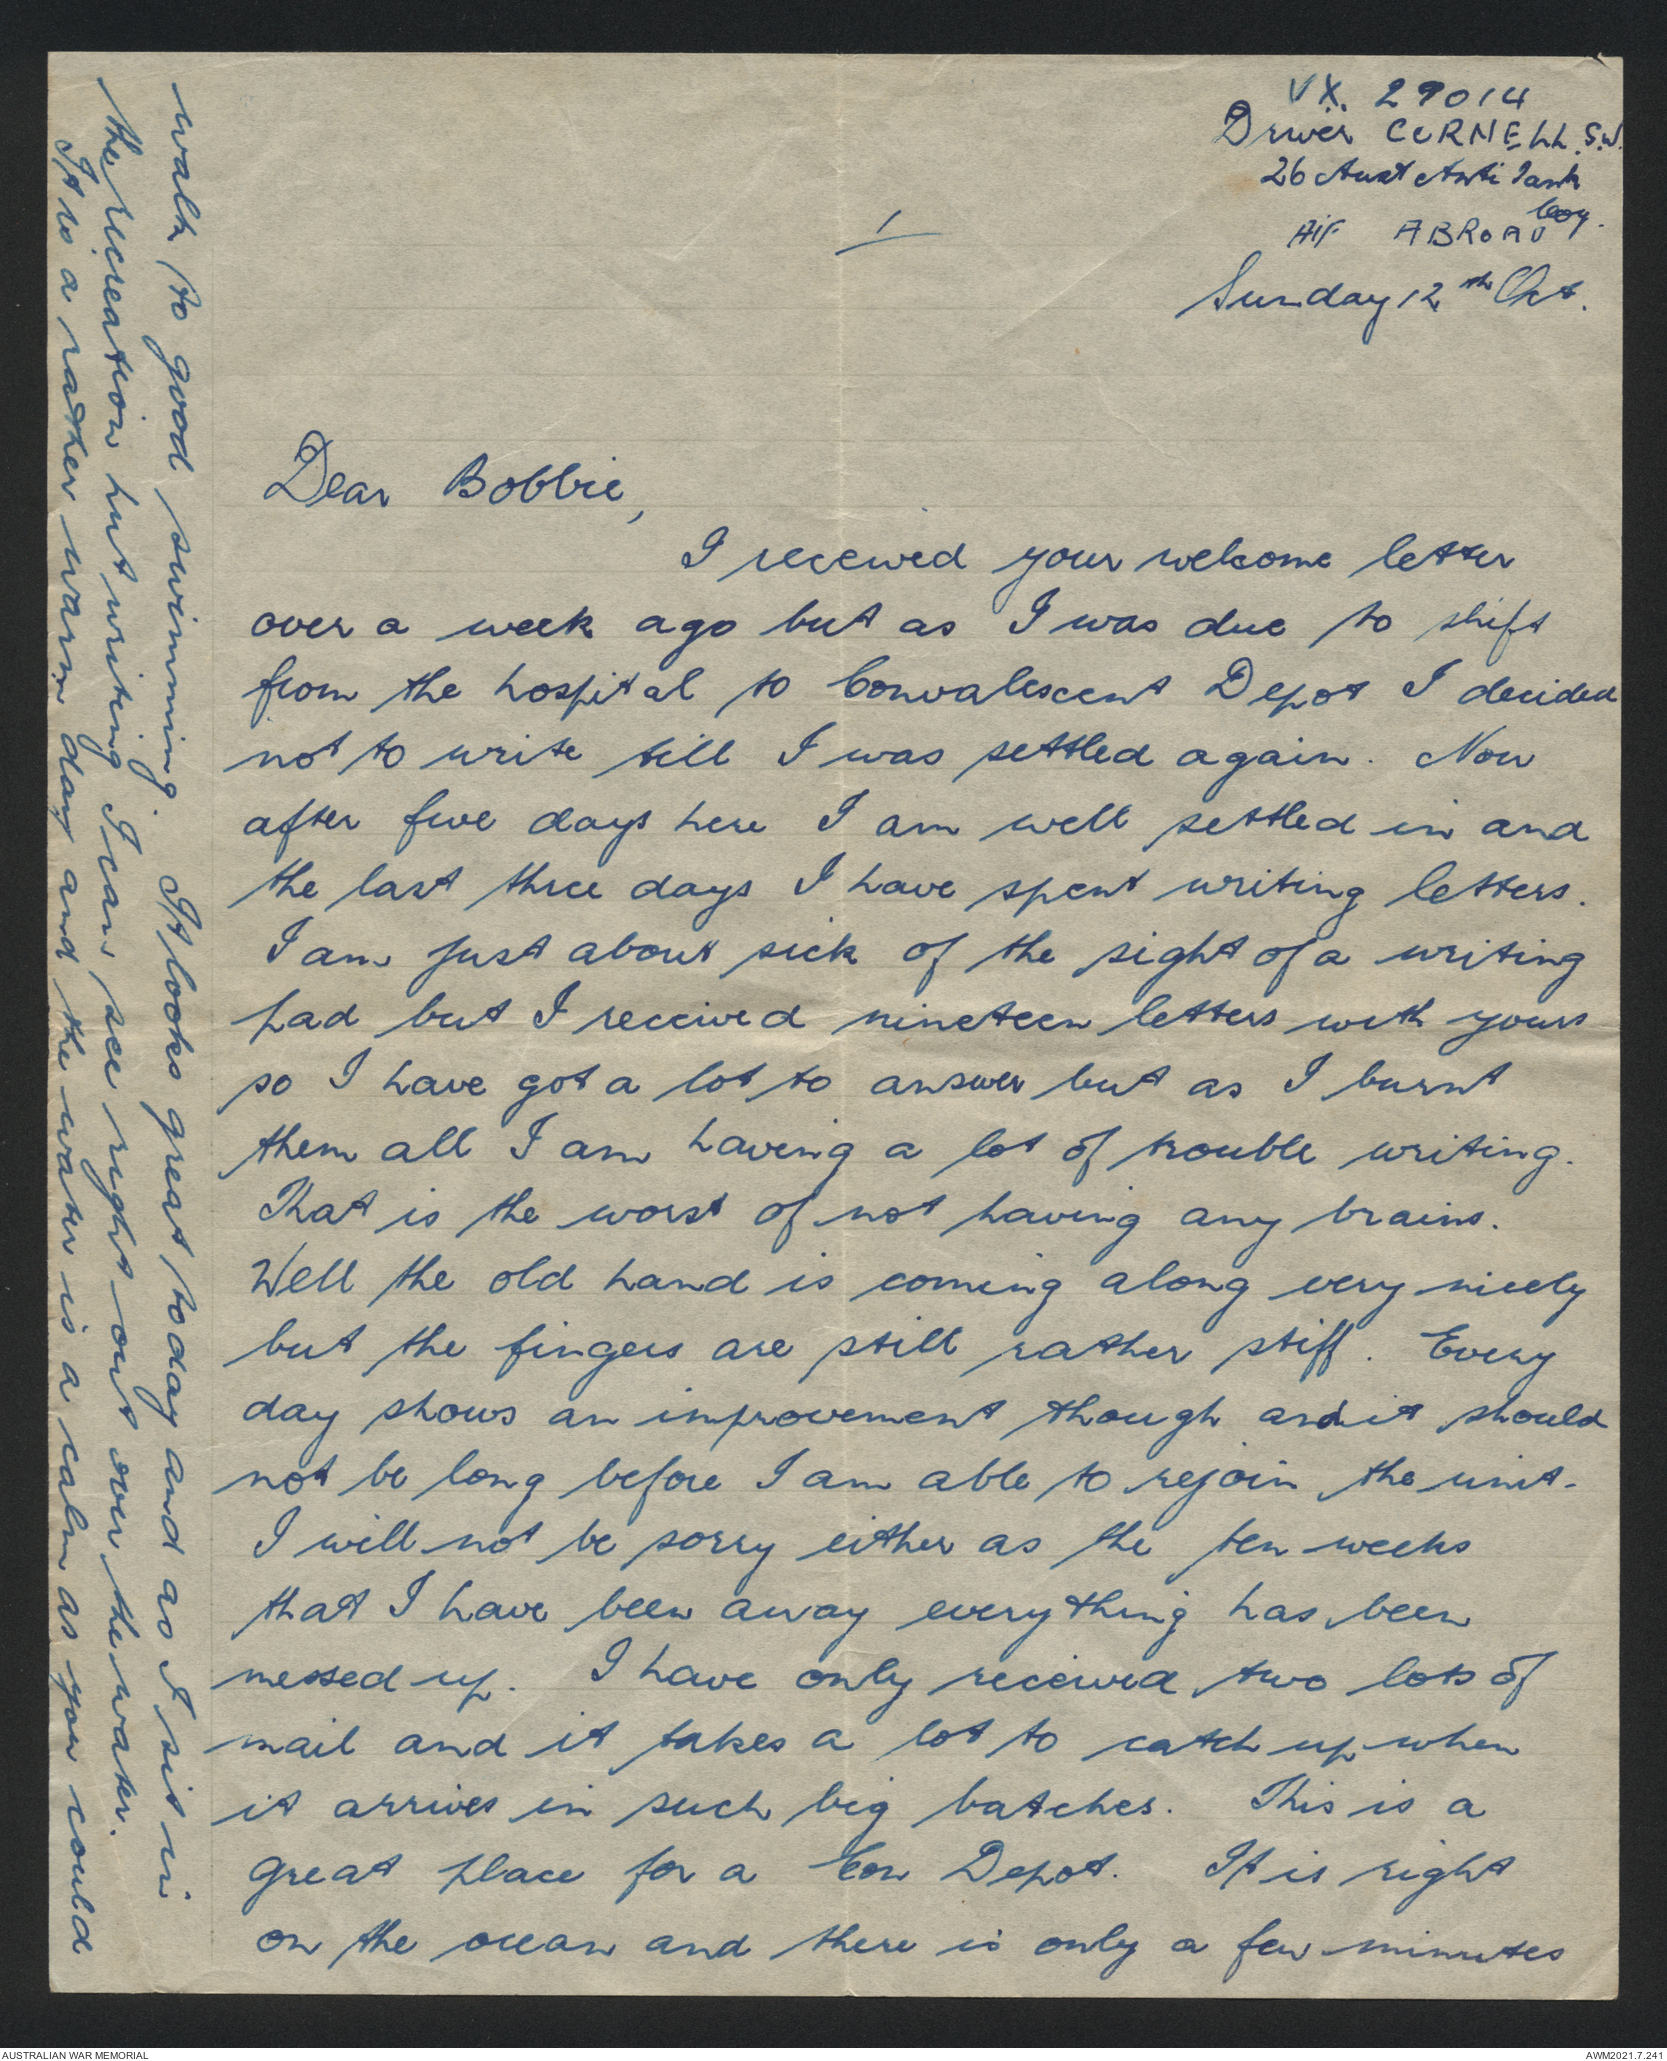 VX. 29014
Driver CORNELL. S.W.
26 Aust Anti Tank
Coy.
AIF ABROAD
1
Sunday 12th Oct.
Dear Bobbie,
I received your welcome letter
over a week ago but as I was due to shift
from the hospital to Convalescent Depot I decided
not to write till I was settled again. Now
after five days here I am well settled in and
the last three days I have spent writing letters.
I am just about sick of the sight of a writing
pad but I received nineteen letters with yours
so I have got a lot to answer but as I burnt
them all I am having a lot of trouble writing.
That is the worst of not having any brains.
Well the old hand is coming along very nicely
but the fingers are still rather stiff. Every
day shows an improvement though and it should
not be long before I am able to rejoin the unit.
I will not be sorry either as the ten weeks
that I have been away everything has been
messed up. I have only received two lots of
mail and it takes a lot to catch up when
it arrives in such big batches. This is a
great place for a Con Depot. It is right
on the ocean and there is only a few minutes
walk to good swimming. It looks great today and as I sit in
the recreation hut writing I can see right out over the water.
It is a rather warm day and the water is a calm as you could
AUSTRALIAN WAR MEMORIAL
AWM2021.7.241